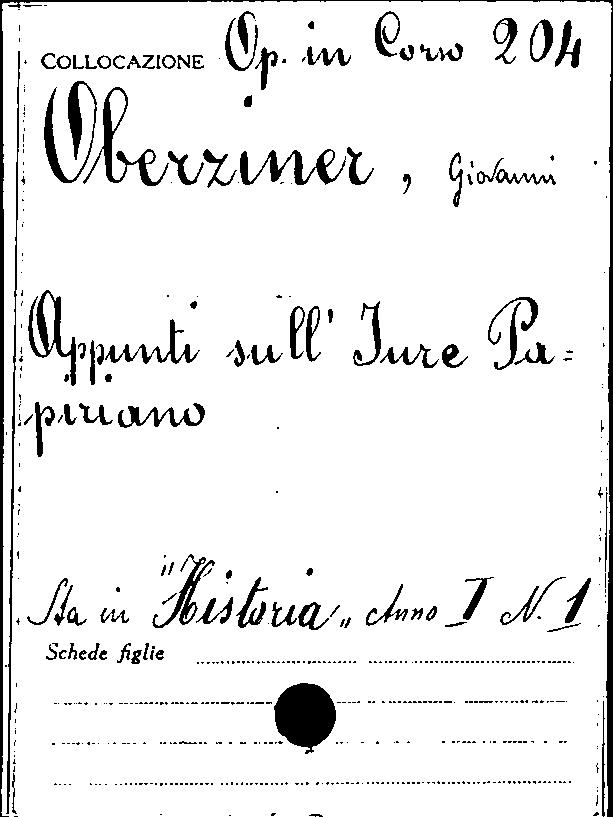 COLLOCAZIONE Op. in Corso 204
Oberziner, Giovanni
Appunti sull' Iure Pa=
piriano
Sta in "Historia" Anno I N. 1
Schede figlie